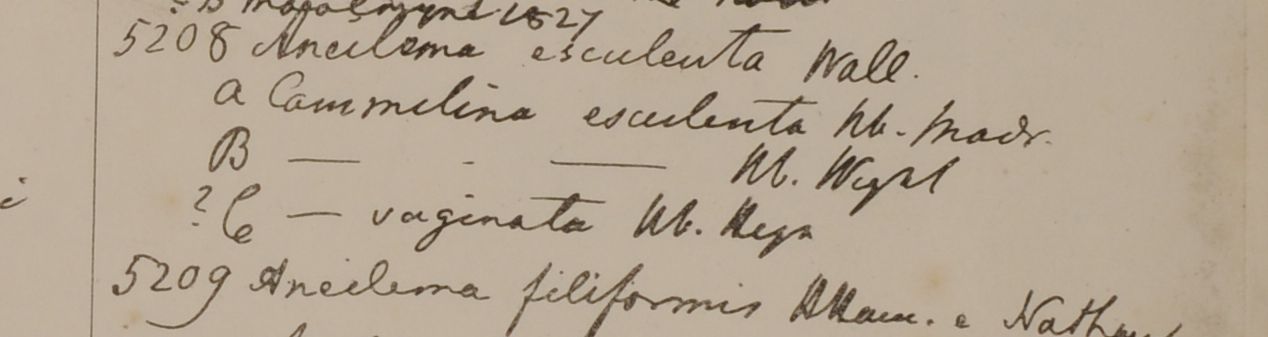 1827
5208 Aneilema esculenta Wall.
a Commelina esculenta Hb. Madr.
B — - — Hb. Wight
? C — vaginata Hb. Heyn
5209 Aneilema filiformis HHam. e